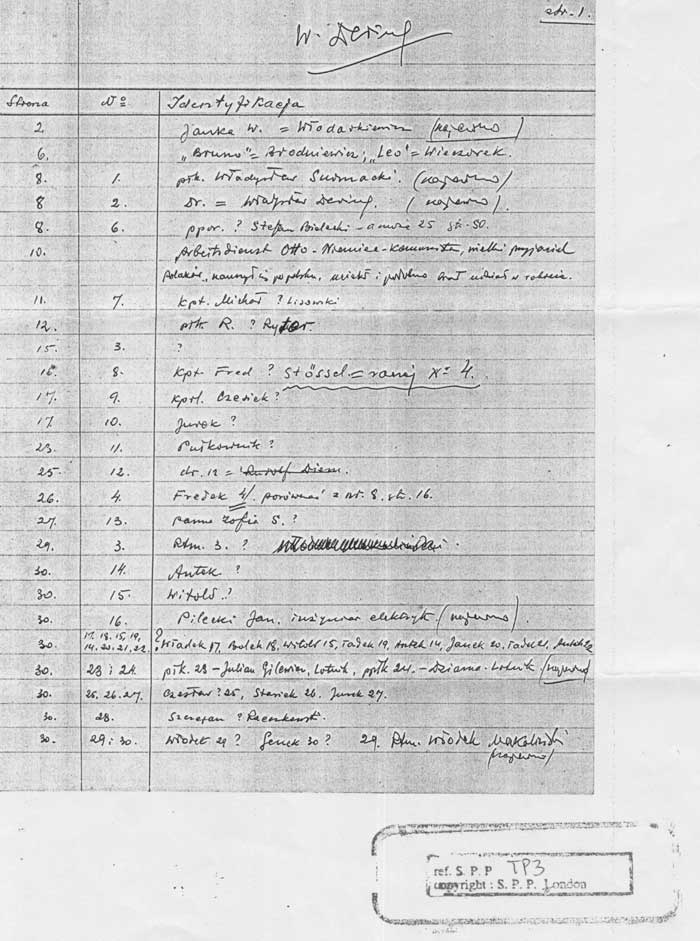 str. 1.
W. Dering
Strona Nº Identyfikacja
2. Janka W. = Włodarkiewicz (na pewno)
6. „Bruno" = Brodniewicz; „Leo" = Wieczorek.
8. 1. płk. Władysław Surmacki. (na pewno)
8 2. Dr. = Władysław Dering. (na pewno).
8. 6. ppor. ? Stefan Bielecki - a może 25 str. 50.
10. Arbeitsdienst Otto - Niemiec - Komunista, wielki przyjaciel
Polaków, nauczył się po polsku, uciekł i podobno brał udział w
11. 7. Kpt. Michał ? Lisowski
12. płk R. ? Ryter.
15. 3. ?
16. 8. Kpt. Fred ? Stössel = raczej Nº 4.
17. 9. Kprl. Czesiek?
17. 10. Jurek?
23. 11. Pułkownik?
25. 12. dr. 12 = Rudolf Diem.
26. 4. Fredek 4/ porównać z nr. 8. str. 16.
27. 13. panna Zofia S.?
29. 3. Rtm. 3. ?
30. 14. Antek ?
30 15. Witold ?
30. 16. Pilecki Jan. inżynier elektryk (na pewno).
30. 17. 18. 15, 19, 14. 20. 21. 22. ? Władek 17, Bolek 18, Witold 15, Tadek 19, Antek 14, Janek 20, Tadek 21, Antek 22
30. 23 i 24. płk. 23 - Julian Gilewicz, Lotnik, ppłk 24. - Dziama - Lotnik (na pewno)
30. 25. 26. 27. Czesław? 25, Stasiek 26. Jurek 27.
30. 28. Szczepan ? Rzeczkowski.
30. 29 i 30. Włodek 29 ? Genek 30 ? 29. Rtm. Włodek Makaliński
(na pewno)
ref. S. P. P TP3
copyright : S. P. P. London